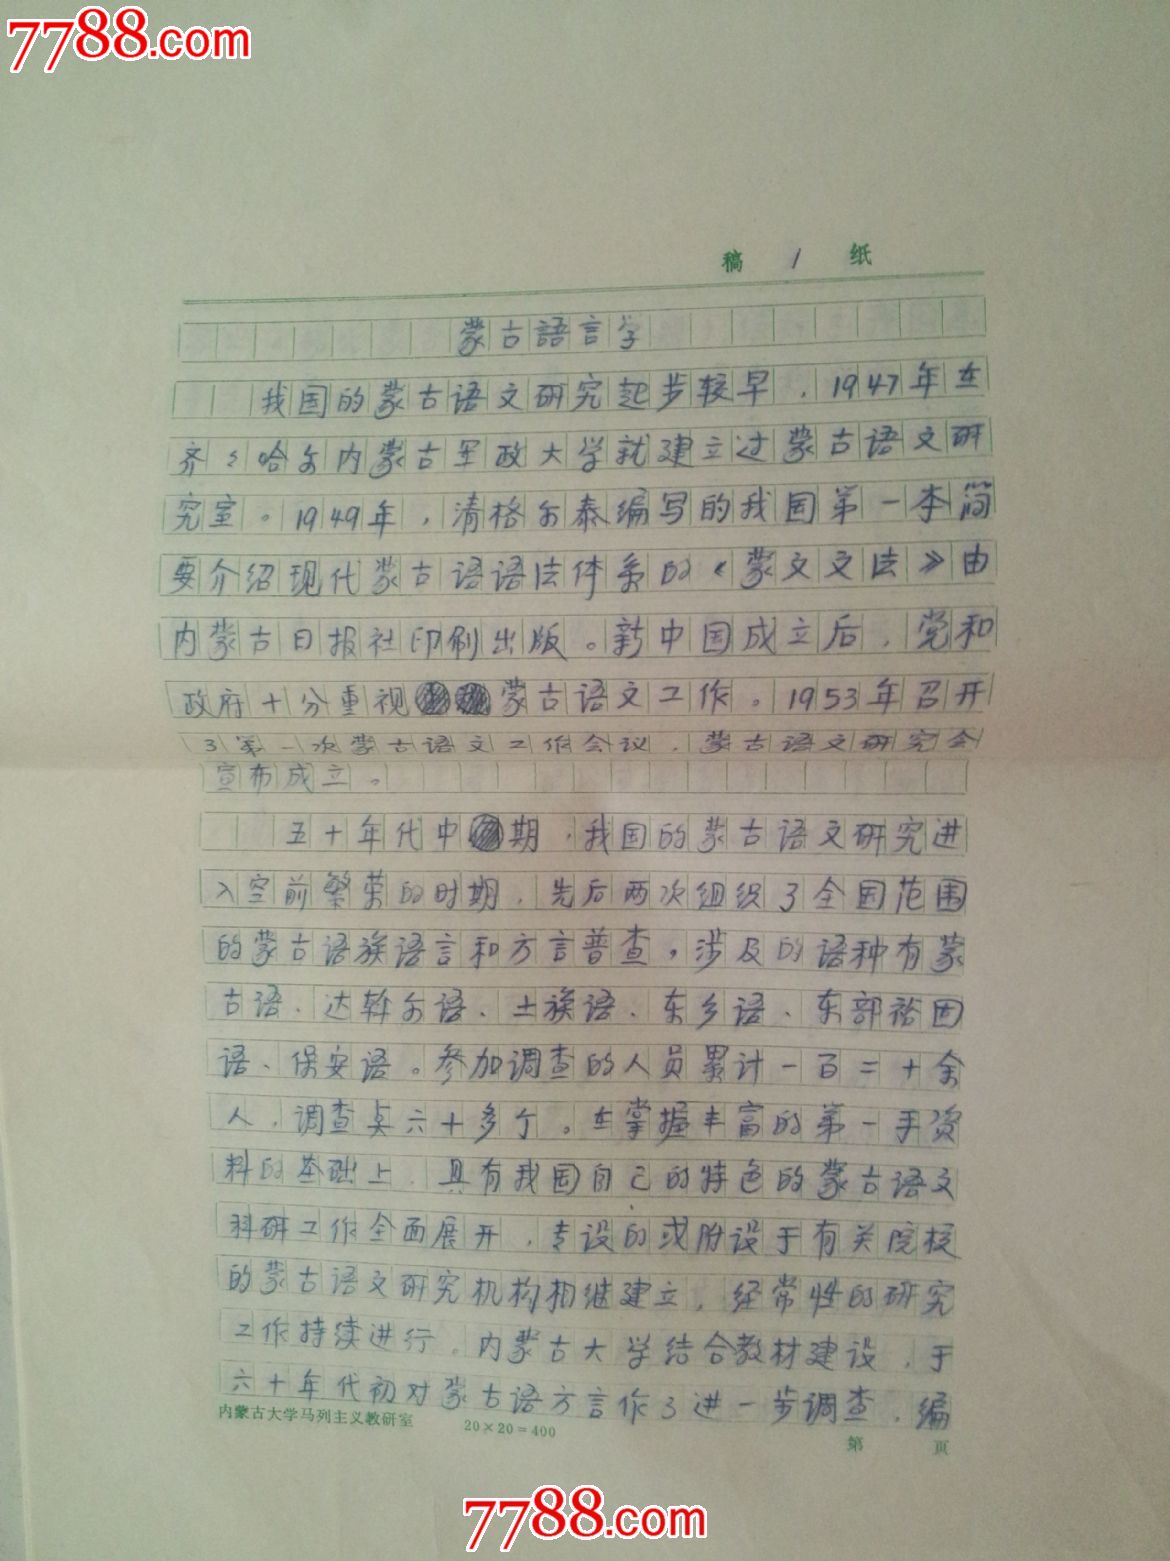 7788.com
稿 1 纸
蒙古語言学
我国的蒙古语文研究起步较早，1947年在
齐々哈尔内蒙古军政大学就建立过蒙古语文研
究室。1949年，清格尔泰编写的我国第一本简
要介绍现代蒙古语语法体系的《蒙文文法》由
内蒙古日报社印刷出版。新中国成立后，党和
政府十分重视蒙古语文工作。1953年召开
了第一次蒙古语文工作会议，蒙古语文研究会
宣布成立。
五十年代中期，我国的蒙古语文研究进
入空前繁荣的时期，先后两次组织了全国范围
的蒙古语族语言和方言普查，涉及的语种有蒙
古语、达斡尔语、土族语、东乡语、东部裕固
语、保安语。参加调查的人员累计一百二十余
人，调查点六十多个。在掌握丰富的第一手资
料的基础上，具有我国自己的特色的蒙古语文
科研工作全面展开，专设的或附设于有关院校
的蒙古语文研究机构相继建立，经常性的研究
工作持续进行。内蒙古大学结合教材建设，于
六十年代初对蒙古语方言作了进一步调查，编
内蒙古大学马列主义教研室 20×20=400
第 页
7788.com